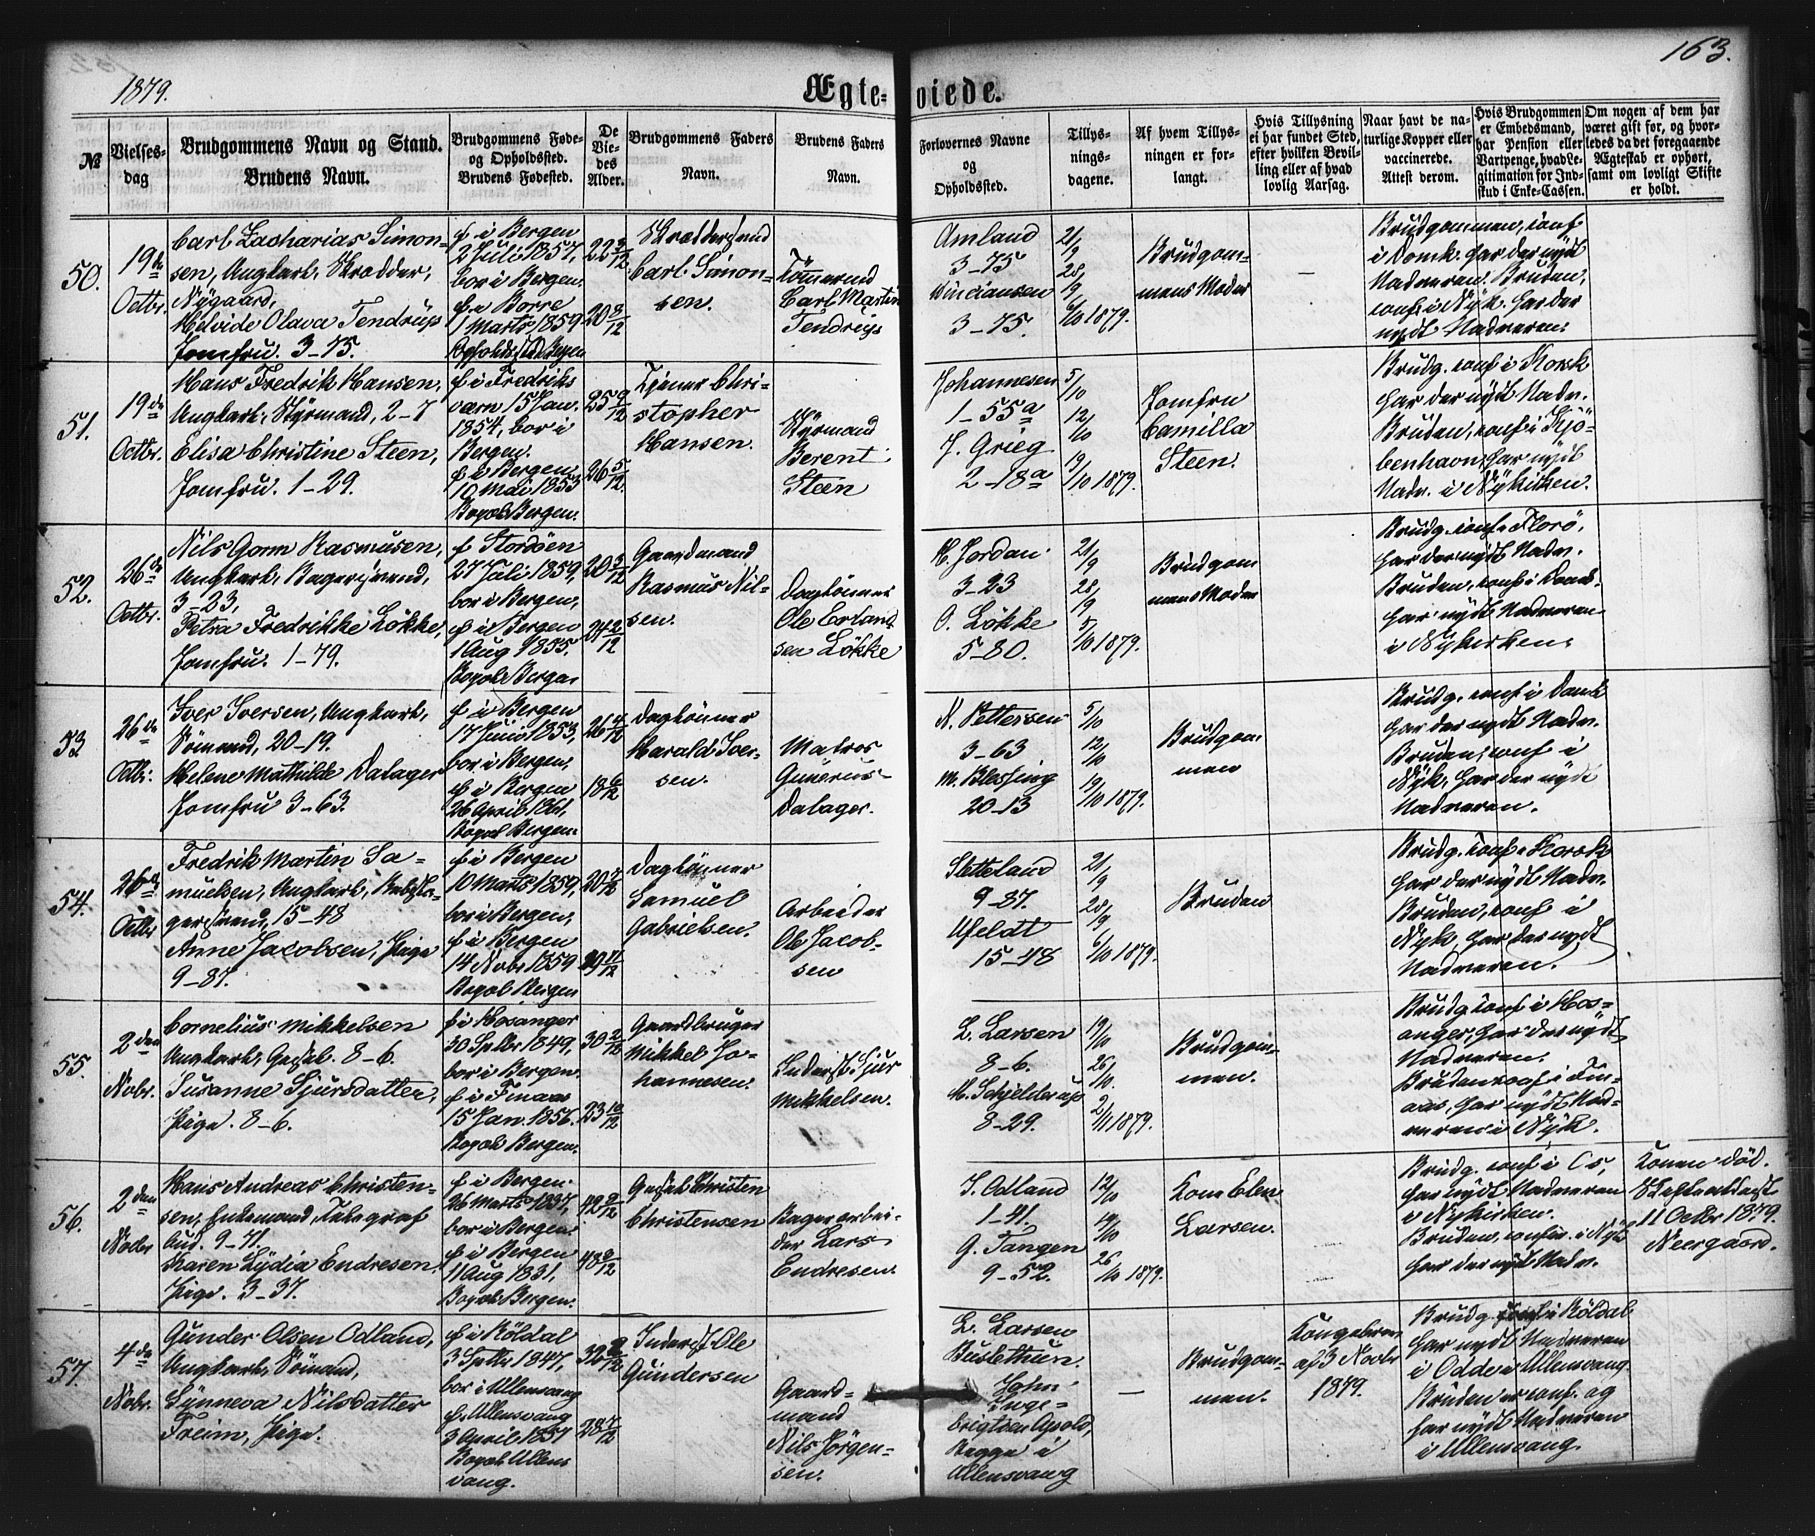 1879.
Ægte-
viede.
163.
№
Vielses-
dag
Brudgommens Navn og Stand.
Brudens Navn.
Brudgommens Føde-
og Opholdssted.
Brudens Fødested.
De
Vie-
des
Alder.
Brudgommens Faders
Navn.
Brudens Faders
Navn.
Forlovernes Navne
og
Opholdssted.
Tillys-
nings-
dagene.
Af hvem Tillys-
ningen er for-
langt.
Hvis Tillysning
ei har fundet Sted,
efter hvilken Bevil-
ling eller af hvad
lovlig Aarsag.
Naar havt de na-
turlige Kopper eller
vaccinerede.
Attest derom.
Hvis Brudgommen
er Embedsmand,
har Pension eller
Vartpenge, hvad Le-
gitimation for Ind-
skud i Enke-Cassen.
Om nogen af dem har
været gift for, og hvor-
ledes da det foregaaende
Ægteskab er ophørt,
samt om lovligt Skifte
er holdt.
50.
19de
Octbr.
Carl Zacharias Simon-
sen, Ungkarl, Skrædder,
Nygaard,
Helvide Olava Tendrup
Jomfru. 3-75.
f. i Bergen
2 Juli 1857,
bor i Bergen.
f. i Borre
1 Marts 1859
Opholdsst Bergen
22 3/12
20 8/12
Skræddersvend
Carl Simon-
sen.
Tømmermd
Carl Martin
Tendrup
Amland
3-75
3-75.
21/9
28/9
6/10 1879.
Brudgom-
mens Moder
—
Brudgommen, conf
i Domk. har der nydt
Nadveren. Bruden,
conf. i Nyk. har der
nydt Nadveren.
51.
19de
Octbr.
Hans Fredrik Hansen,
Ungkarl, Styrmand, 2-7
Elisa Christine Steen,
Jomfru. 1-29.
f. i Fredriks
værn 15 Jan.
1854, bor i
Bergen.
f. i Bergen
10 Mai 1853
Bopæl Bergen.
25 9/12
26 5/12
Tjener Chri-
stopher
Hansen.
Styrmand
Berent
Steen
Johannesen
1-55a
J. Grieg
2-18a
5/10
12/10
19/10 1879.
Jomfru
Camilla
Steen.
Brudg. conf i Korsk
har der nydt Nadv.
Bruden, conf i Kjö-
benhavn, har nydt
Nadv. i Nykirken.
52.
26de
Octbr.
Nils Gorm Rasmusen,
Ungkarl, Bagersvend,
3-23,
Petra Fredrikke Løkke,
Jomfru. 1-79.
f. Stordöen
27 Juli 1859,
bor i Bergen,
f. i Bergen
1 Aug 1855.
Bopæl Bergen
20 3/12
24 2/12
Gaardmand
Rasmus Nil-
sen.
Dagtönner
Ole Erland
sen Løkke
H. Jordan
3-23
O. Løkke
5-80.
21/9
28/9
5/10 1879.
Brudgom
mens Moder
Brudg. conf i Florö,
har der nydt Nadv.
Bruden, conf i Domk.
har nydt Nadveren
i Nykirken.
53
26de
Octbr.
Iver Iversen, Ungkarl,
Sömand, 20-19.
Helene Mathilde Dalager
Jomfru 3-63.
f. i Bergen
17 Juni 1853,
bor i Bergen,
f. i Bergen
26 April 1861,
Bopæl Bergen
26 4/12
18 6/12
Dagtönner
Harald Iver-
sen.
Matros
Gunerus
Dalager.
N. Pettersen
3-63
M. Blessing
20-13
5/10
12/10
19/10 1879.
Brudgom
men
Brudg. conf i Domk
har der nydt Nadv.
Bruden, conf i
Nyk. har der nydt
Nadveren.
54.
26de
Octbr
Fredrik Martin Sa-
muelsen, Ungkarl,
15-48
Anne Jacobsen, Pige
9-87.
f. i Bergen
10 Marts 1859,
bor i Bergen,
f. i Bergen
14 Novbr 1859
Bopæl Bergen
20 7/12
19 11/12
Dagtönner
Samuel
Gabrielsen.
Arbeider
Ole Jacob-
sen
Sletteland
9-87.
Ufeldt
15-48
21/9
28/9
6/10 1879.
Bruden
Brudg. conf i Korsk
har der nydt Nadv.
Bruden, conf i
Nyk, har der nydt
Nadveren.
55.
2den
Novbr.
Cornelius Mikkelsen
Ungkarl, Gesel. 8-6.
Susanne Sjursdatter,
Pige. 8-6.
f. i Hosanger
30 Septbr 1849,
bor i Bergen.
f. i Finaas
15 Jan. 1856.
Bopæl Bergen.
30 2/12
23 10/12
Gaardbruger
Mikkel Jo-
hannesen.
Inderst Sjur
Mikkelsen.
L. Larsen
8-6.
M. Schjelderup
8-29.
19/10
26/10.
2/11 1879.
Brudgom-
men.
Brudg conf i Hos-
anger, har der nydt
Nadveren.
Bruden conf i Fin-
aas, har nydt Nad-
veren i Nyk.
56.
2den
Novbr
Hans Andreas Christen-
sen, Enkemand, Telegraf
bud. 9-71.
Karen Lydia Endresen,
Pige. 3-37.
f. i Bergen
26 Marts 1837,
bor i Bergen
f. i Bergen
11 Aug 1831,
Bopæl Bergen.
42 8/12
48 3/12
Gesel Christen
Christensen
Bagerarbei-
der Lars
Endresen.
S. Odland
1-41.
G. Tangen
9-52.
12/10
19/10
26/10 1879.
Kone Elen
Larsen.
Brudg. conf i Os,
har nydt Nadveren
i Nykirken.
Bruden, conf. i Nyk
har der nydt Nadv.
Konen död.
Skifteattest
11 Octbr 1879.
Neergaard.
57.
4de
Novbr.
Gunder Olsen Odland,
Ungkarl, Sömand,
Synneva Nilsdatter
Freim, Pige.
f. i Röldal
3 Septbr 1847,
bor i Ullensvang
f. Ullensvang
3 April 1857
Bopæl Ullens
vang.
32 2/12
Inderst Ole
Gundersen
Gaard-
mand
Nils Jørgen-
sen.
L. Larsen
John
Inge-
brigtsen Apold,
Begge i
Ullensvang
—
Brudgom-
men.
Kongebrev
af 3 Novbr
1879.
Brudg. conf i Röldal
har nydt Nadveren
i Odde i Ullensvang.
Bruden er conf. og
har nydt Nadveren
i Ullensvang.